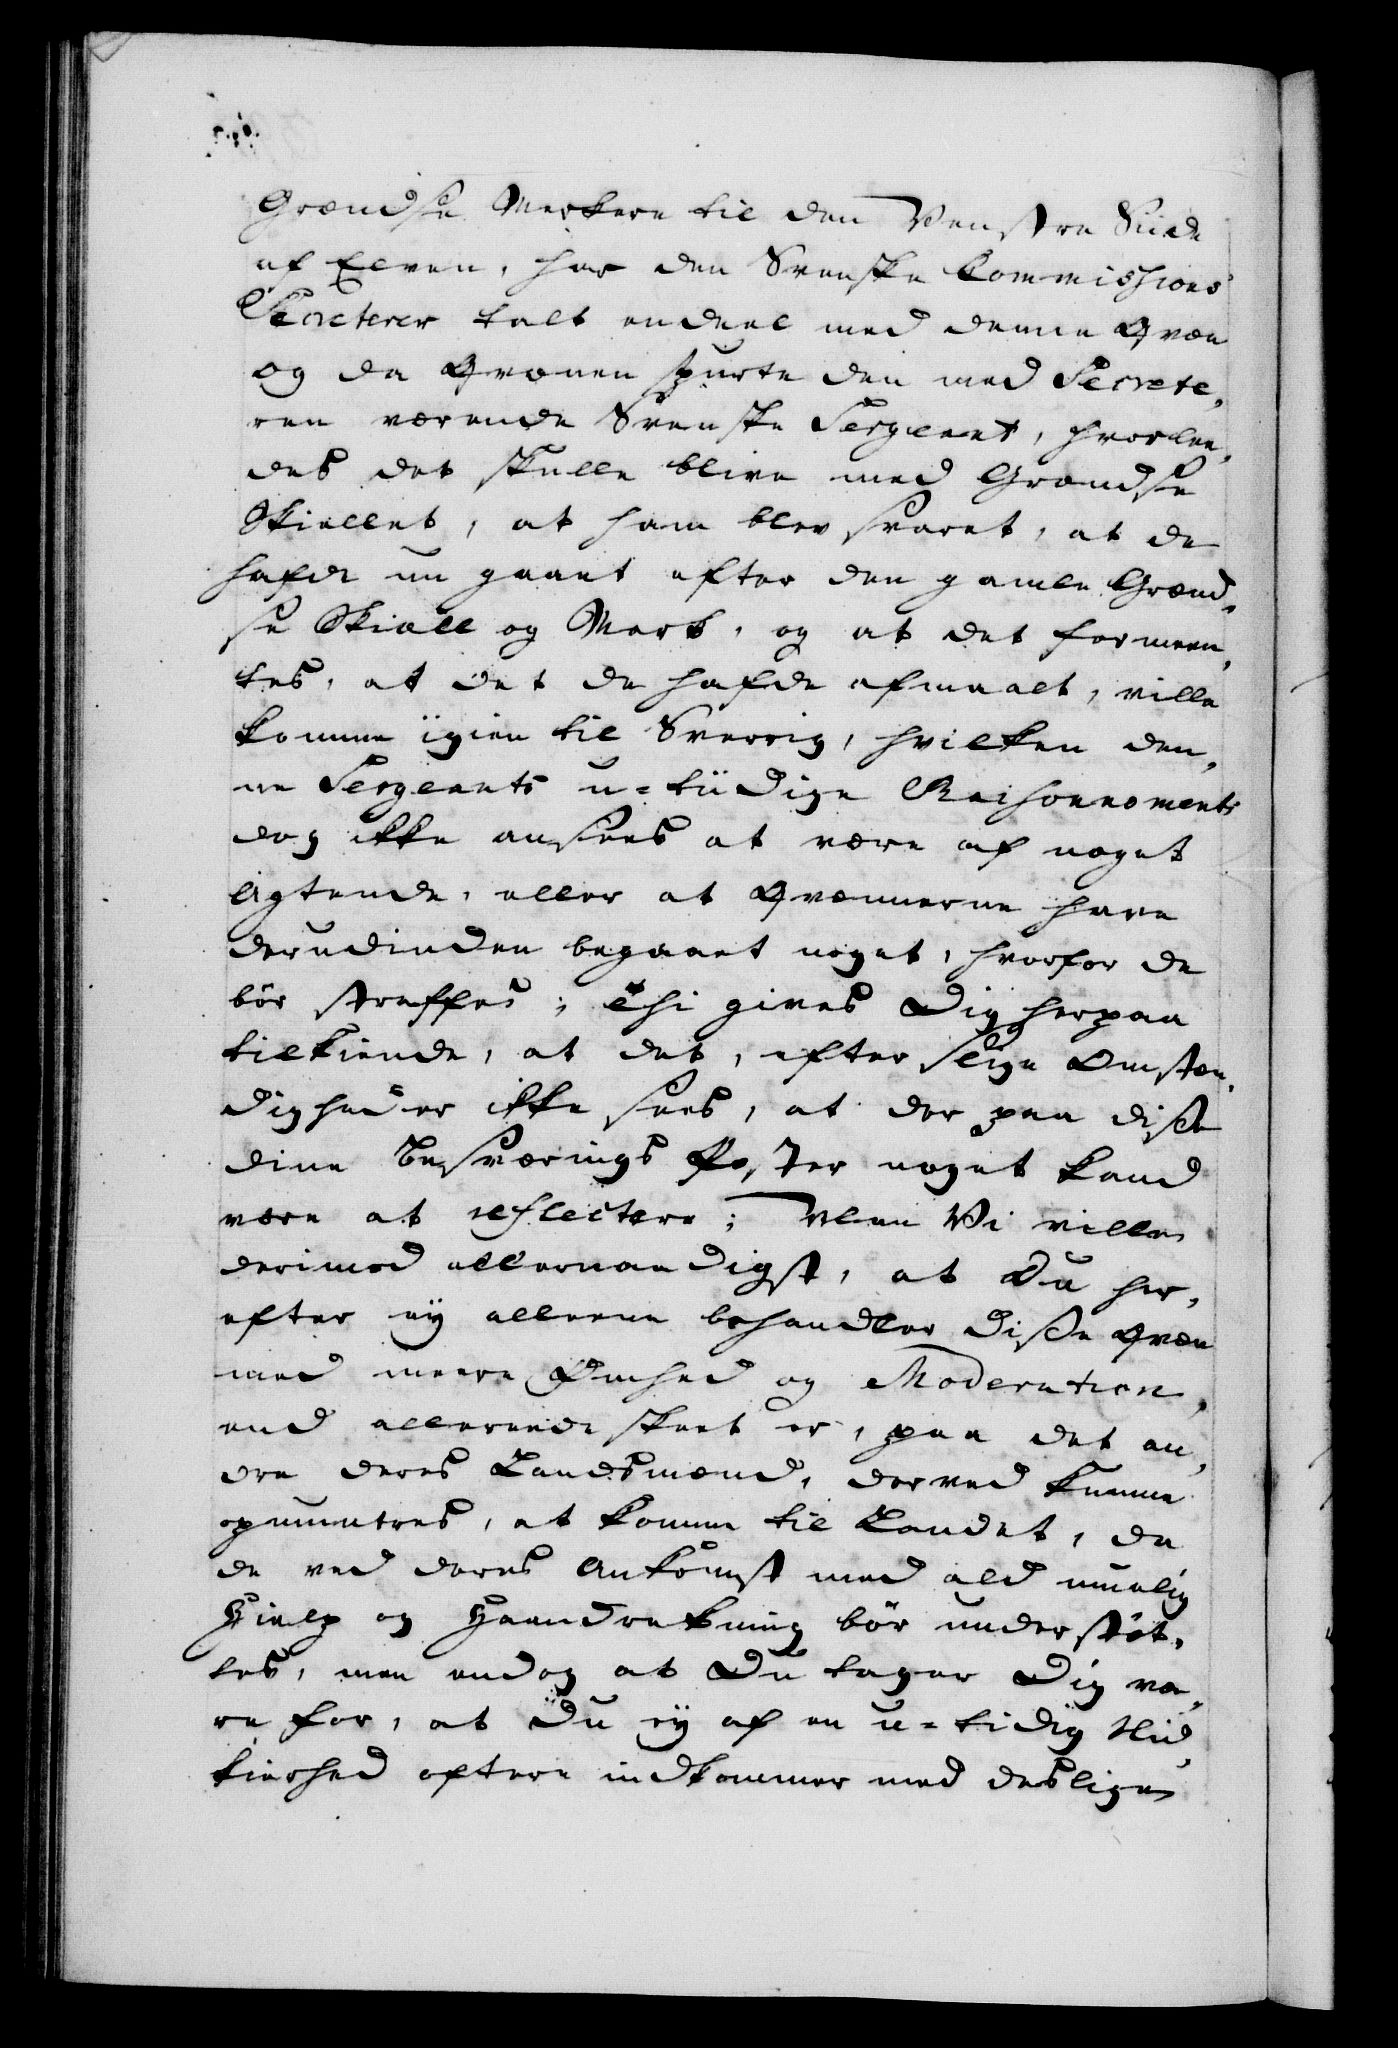 Grændse Merkere til den Venstre Siide
af Elven, har den Svenske Commissions
Secreterer talt endeel med denne Qvæn
og da Qvænen spurte den med Secrete,
ren værende Svenske Sergeant, hvorlee,
des det skulle blive med Grændse
Skiellet, at ham blev svaret, at de
hafde nu gaaet efter den gamle Grænd,
se Skiæll og Merk, og at det formeen,
tes, at det de hafde afmaalt, ville
komme igien til Sverrig, hvilken den,
ne Sergeants u-tiidige Raisonnements
dog ikke ansees at være af noget
Agtende, eller at Qvænnerne have
derudinden begaaet noget, hvorfor de
bør straffes; Thi gives Dig herpaa
tilkiende, at det, efter slige Omstæn,
digheder ikke sees, at der paa diße
dine Besværings Poster noget kand
være at reflectere; Men Vi ville
derimod allernaadigst, at Du her,
efter ey alleene behandler diße Qvæn
med meere Ømhed og Moderation,
end allereede skeet er, paa det an,
dre deres Landsmænd, derved kunne
opmuntres, at komme til Landet, da
de ved deres Ankomst med ald muelig
Hielp og Haandrekning bør understøt,
tes, men endog at Du tager Dig va,
re for, at Du ey af en u-tidig Nid,
kierhed oftere indkommer med deslige